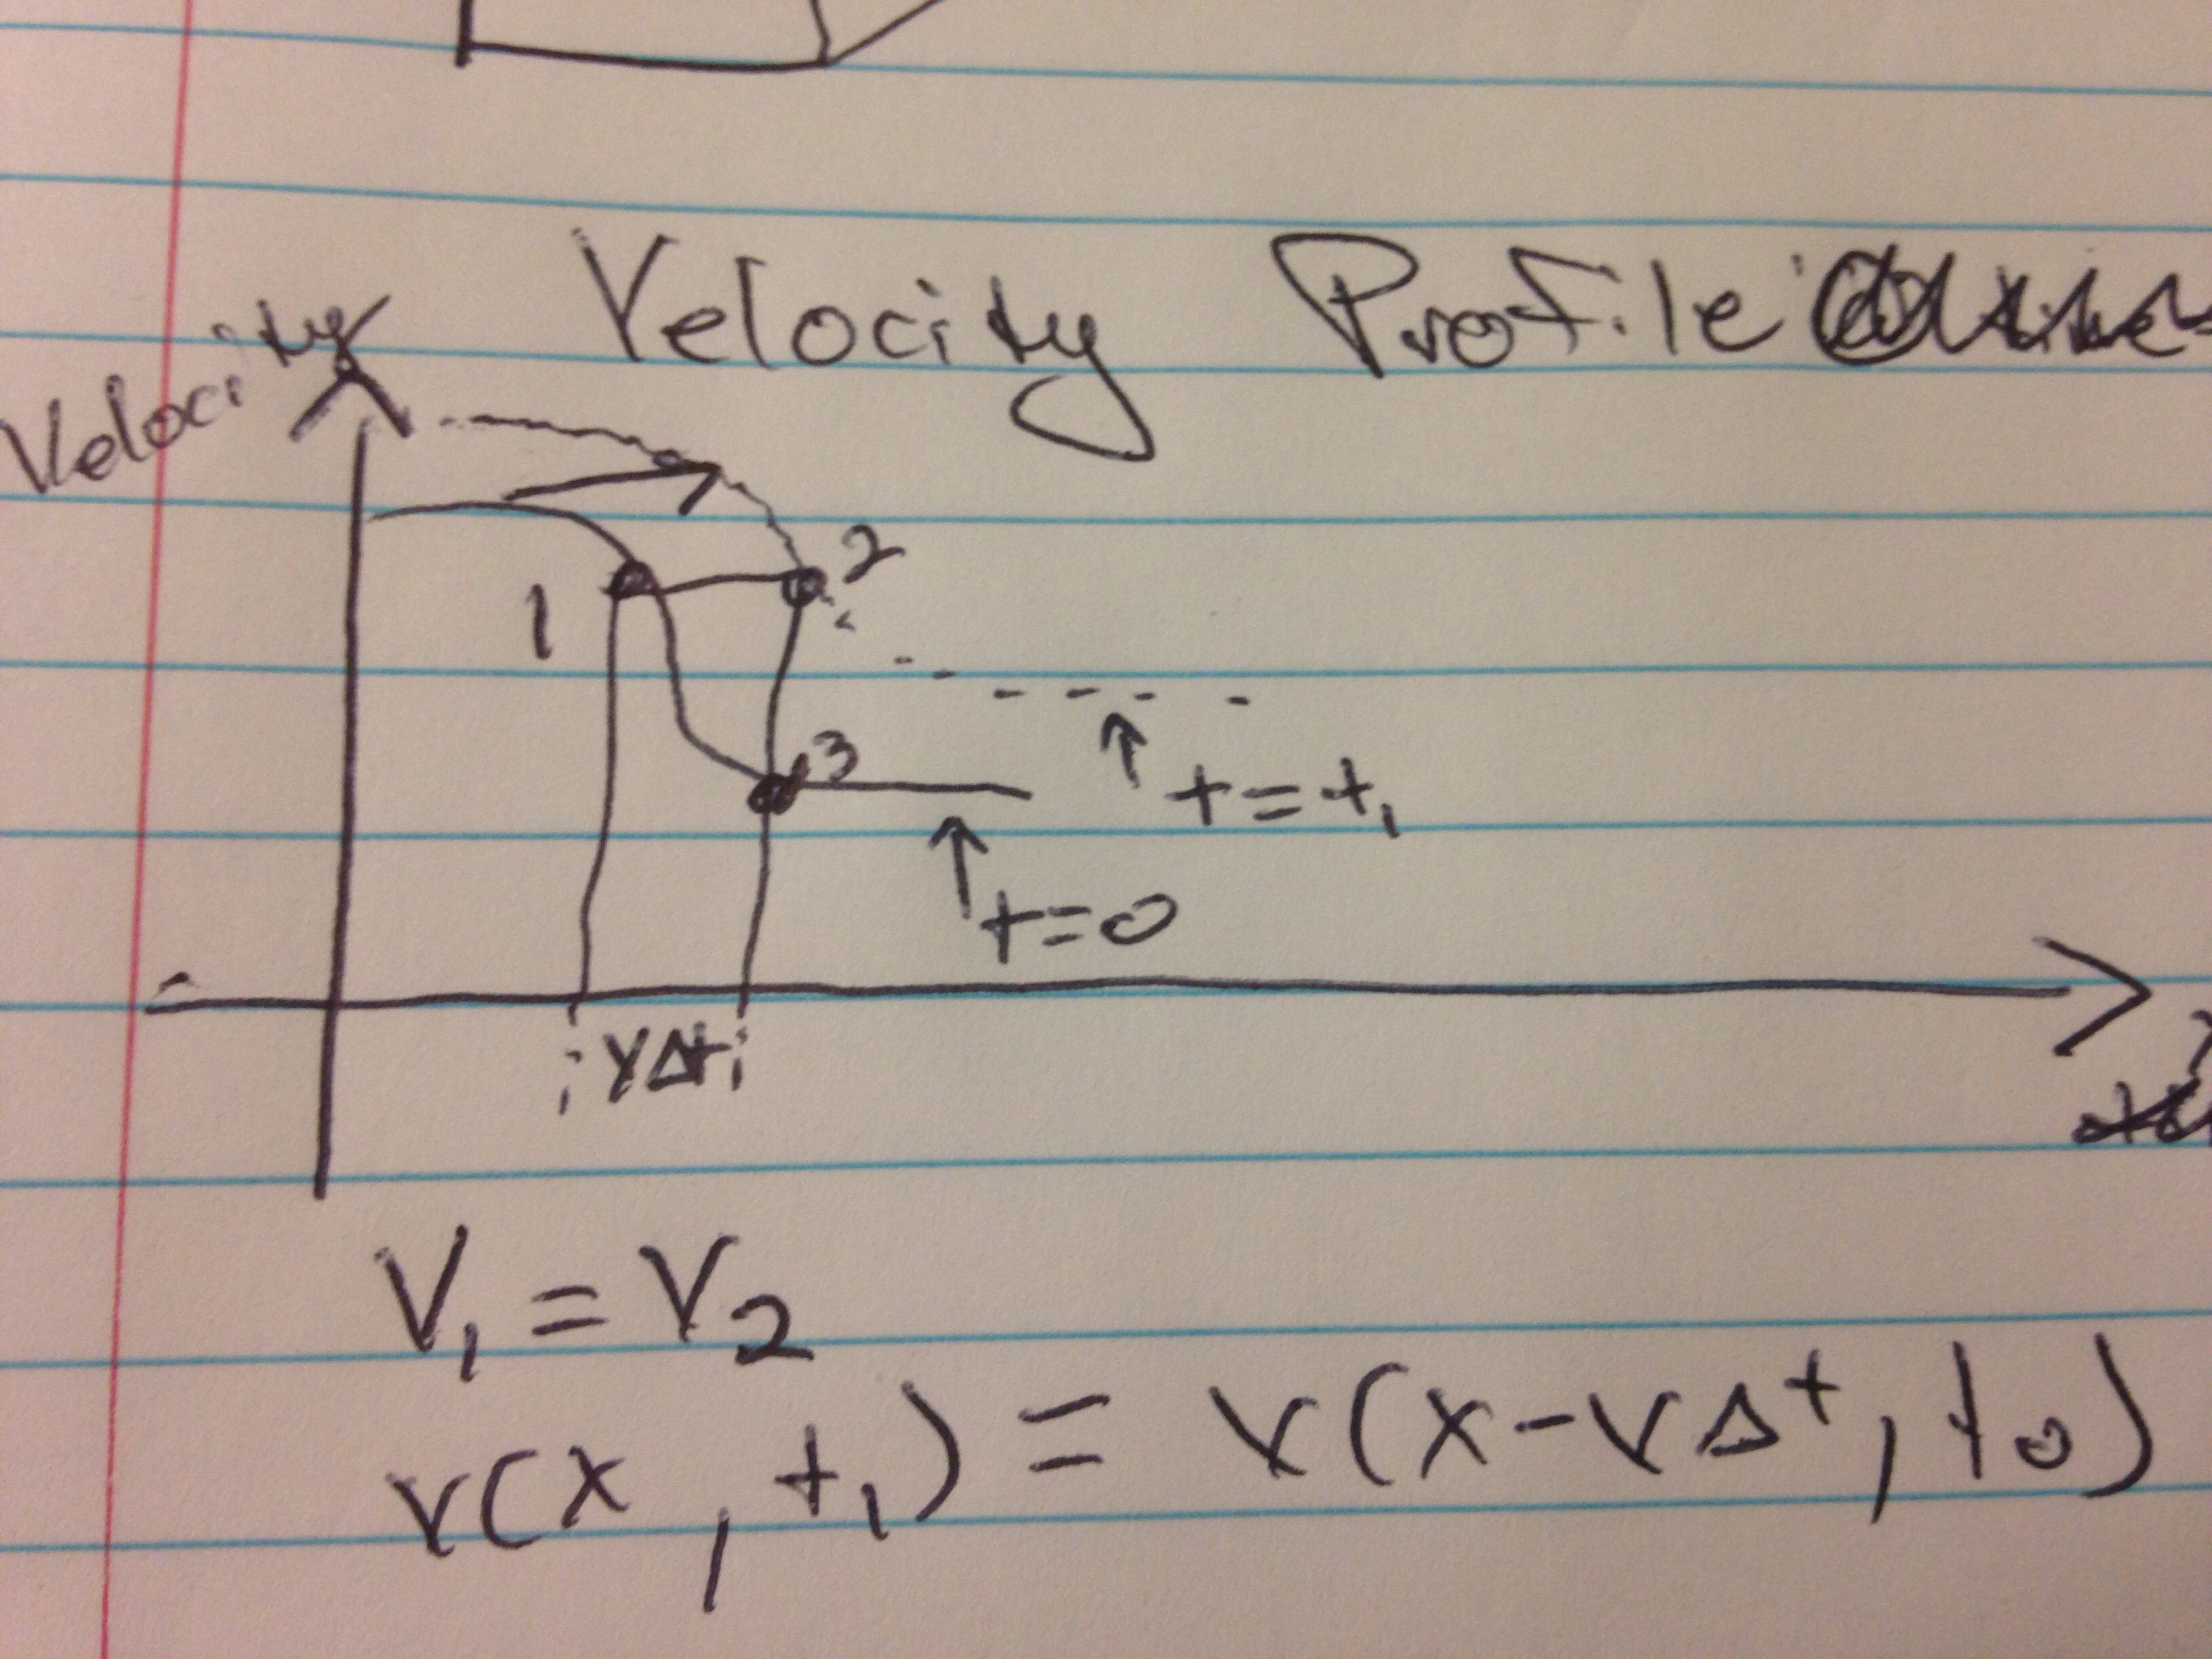 Velocity Profile
Velocity
1
2
3
t=t₁
t=0
VΔt
V₁=V₂
V(x,t₁) = V(x-vΔt, t₀)